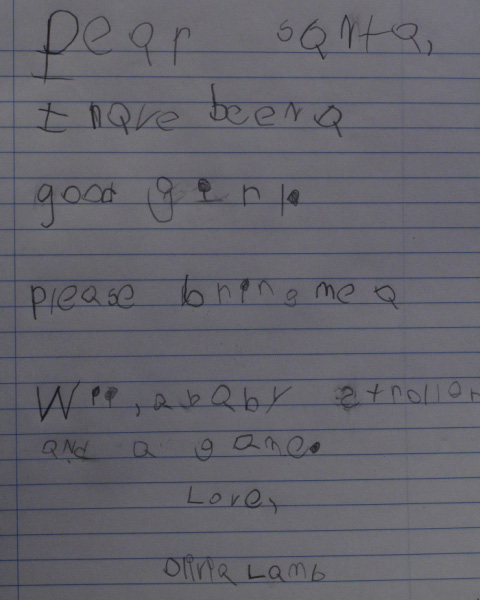 Dear santa,
I have been a
good girl
please bring me a
Wii, a baby strollor
and a game.
Love,
Olivia Lamb